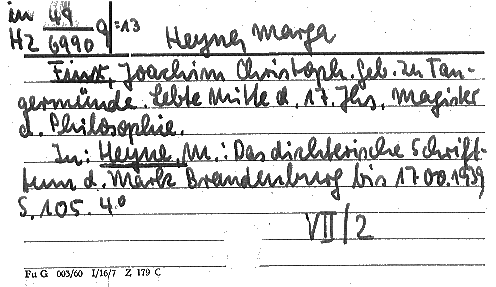 in 49
HZ 6990 q :13
Heyne, Marga
Finx, Joachim Christoph. Geb. zu Tan-
germünde. Lebte Mitte d. 17. Jhs. Magister
d. Philosophie.
In: Heyne, M.: Das dichterische Schrift-
tum d. Mark Brandenburg bis 1700. 1939
S. 105. 4°
VII/2
Fu G 003/60 I/16/7 Z 179 C